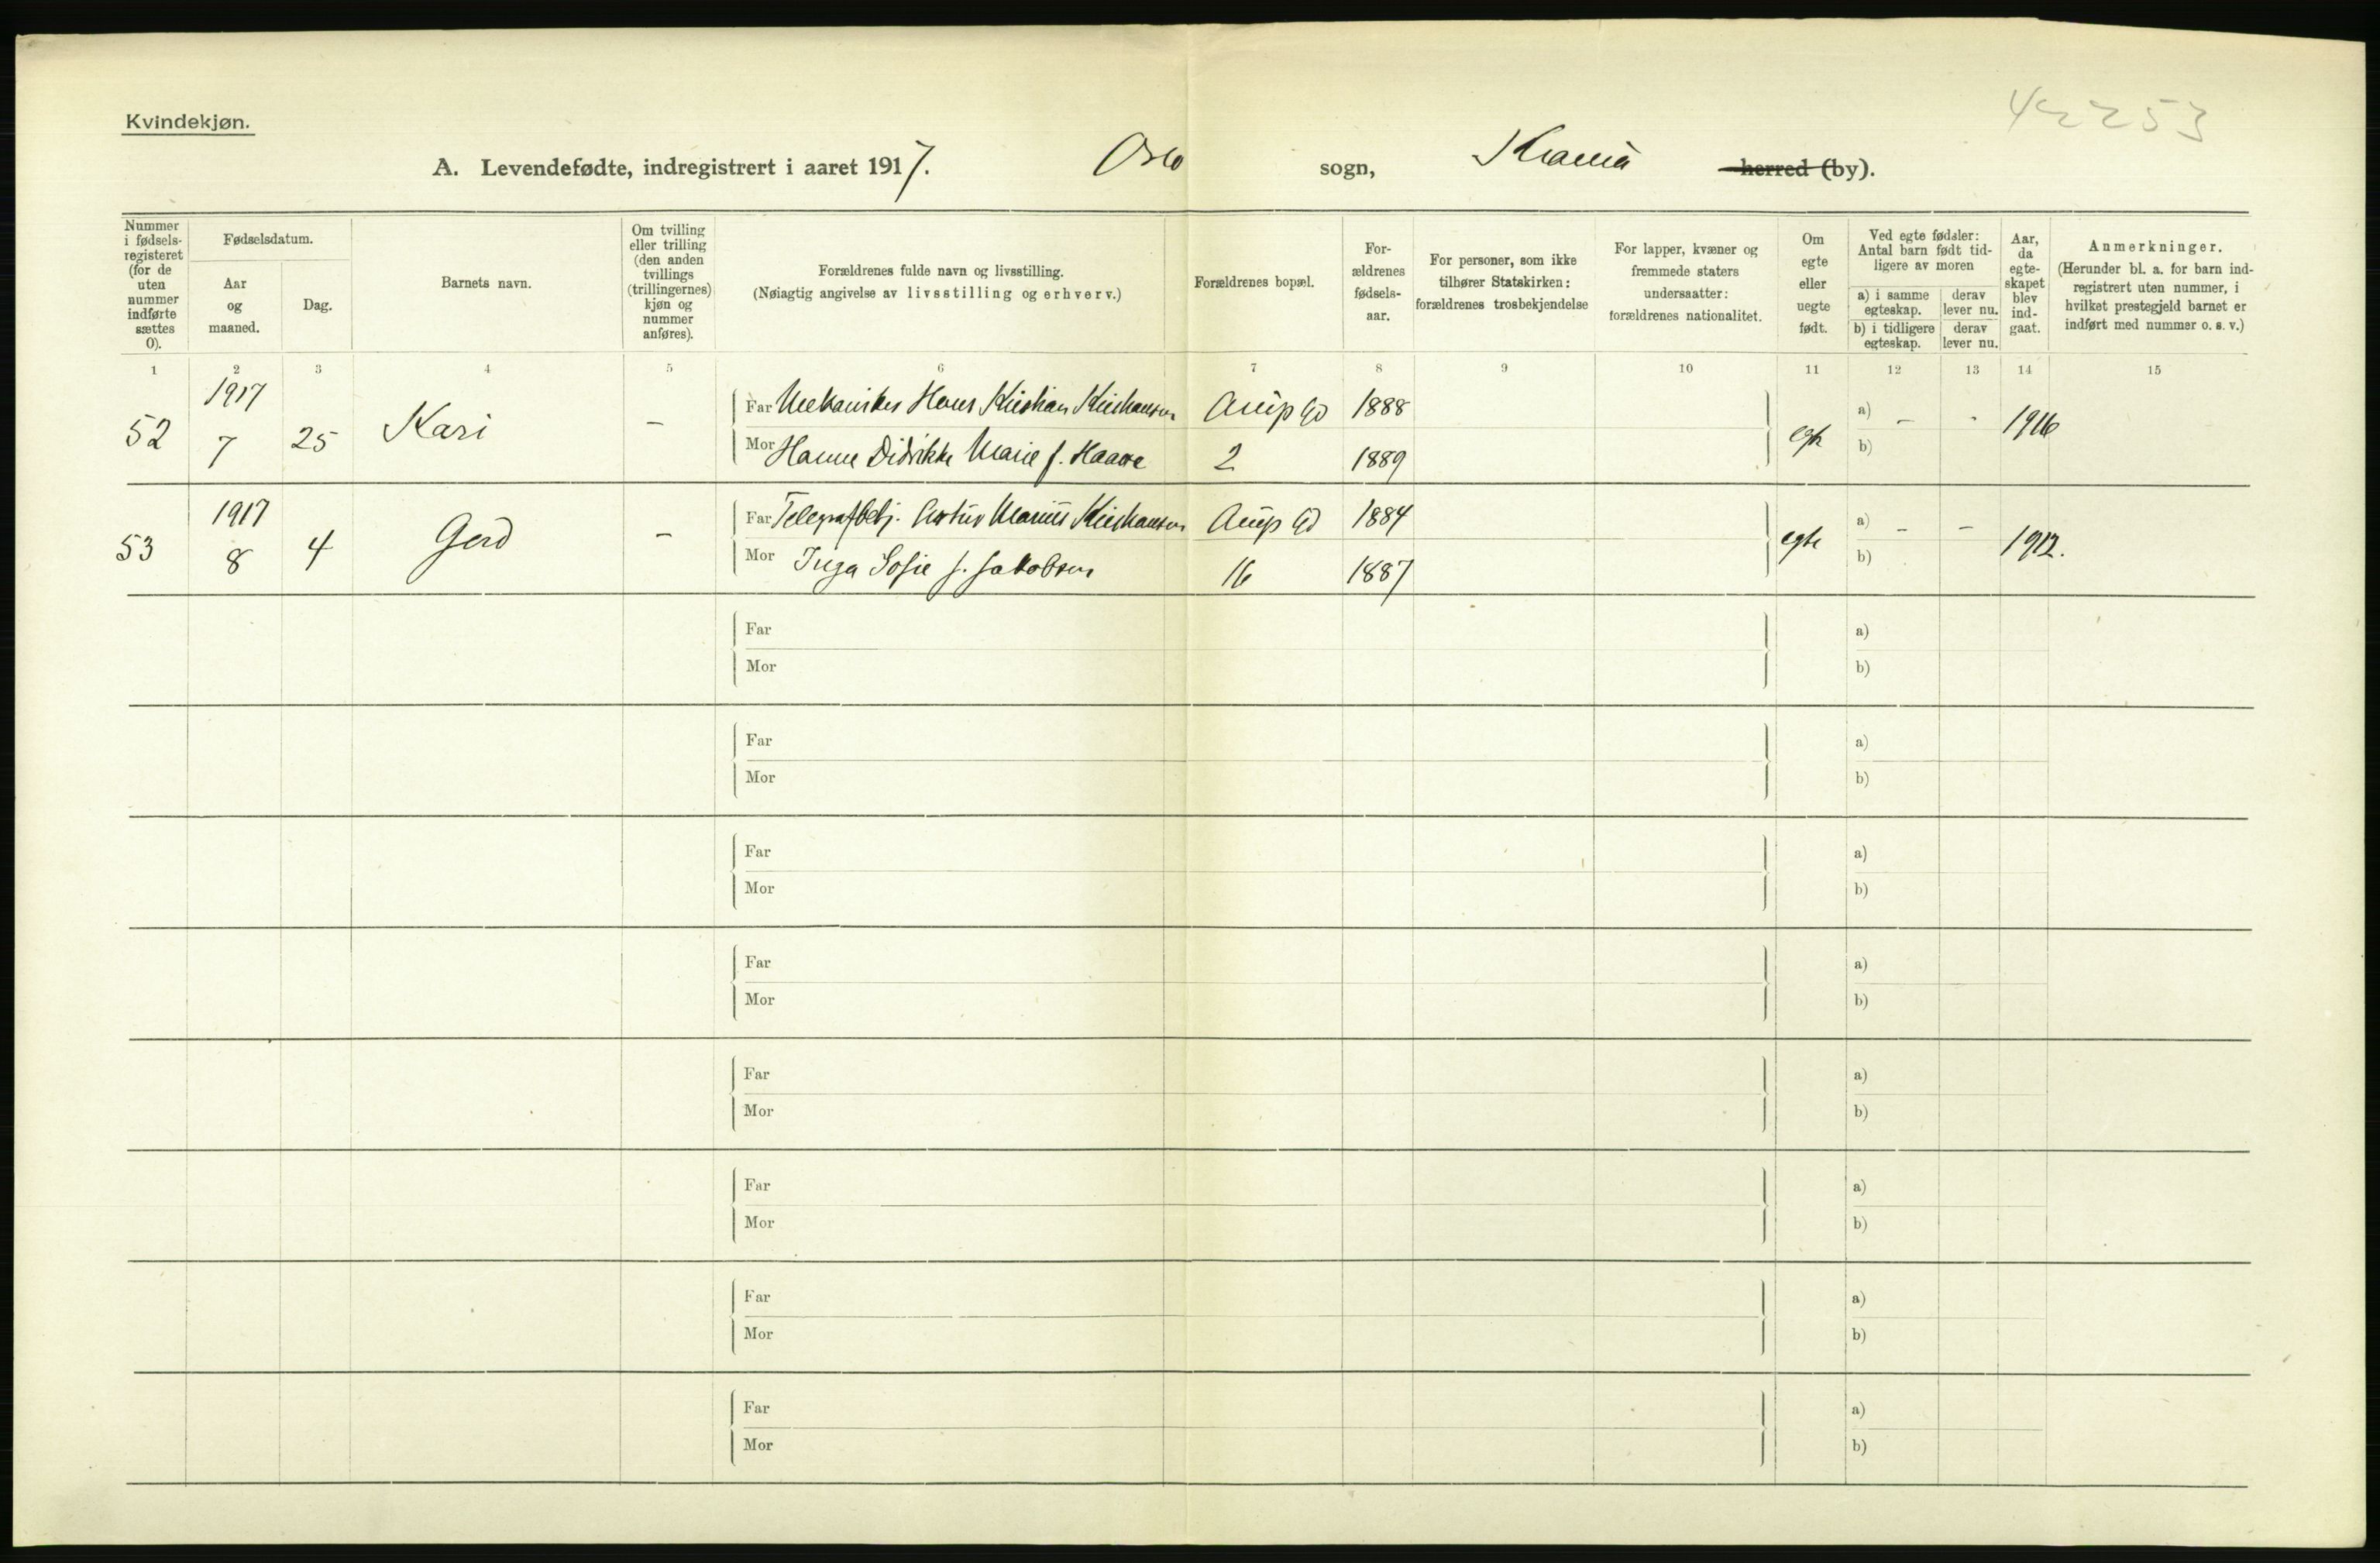 42253
Kvindekjøn.
A. Levendefødte, indregistrert i aaret 1917. Oslo sogn, Krania herred (by).
Nummer i fødsels-registeret (for de uten nummer indførte sættes 0).
Fødselsdatum.
Aar og maaned.
Dag.
Barnets navn.
Om tvilling eller trilling (den anden tvillings (trillingernes) kjøn og nummer anføres).
Forældrenes fulde navn og livsstilling.
(Nøiagtig angivelse av livsstilling og erhverv.)
Forældrenes bopæl.
For-ældrenes fødsels-aar.
For personer, som ikke tilhører Statskirken: forældrenes trosbekjendelse
For lapper, kvæner og fremmede staters undersaatter: forældrenes nationalitet.
Om egte eller uegte født.
Ved egte fødsler: Antal barn født tid-ligere av moren
a) i samme egteskap.
derav lever nu.
b) i tidligere egteskap.
derav lever nu.
Aar, da egte-skapet blev ind-gaat.
Anmerkninger.
(Herunder bl. a. for barn ind-registrert uten nummer, i hvilket prestegjeld barnet er indført med nummer o. s. v.)
1 2 3 4 5 6 7 8 9 10 11 12 13 14 15
1917
Far Mekaniker Hans Kristian Kristiansen Arup Gd 1888
52 7 25 Kari – egte a) – - 1916
b)
Mor Hanne Didrikke Marie f. Haave 2 1889
1917
Far Telegrafbetj. Artur Marius Kristiansen Arup Gd 1884
53 8 4 Gerd – egte a) – – 1912.
b)
Mor Inga Sofie f. Jakobsen 16 1887
Far a)
Mor b)
Far a)
Mor b)
Far a)
Mor b)
Far a)
Mor b)
Far a)
Mor b)
Far a)
Mor b)
Far a)
Mor b)
Far a)
Mor b)